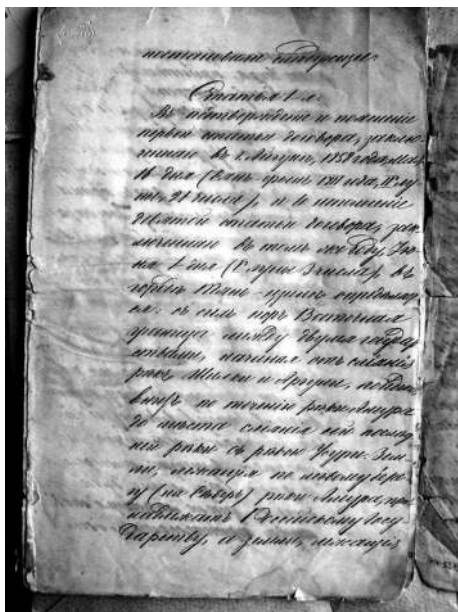 постановили слѣдующее:
Статья 1-я.
Въ подтвержденіе и поясненіе
первой статьи договора, заклю-
ченнаго въ г. Айгунѣ, 1858 года, мая
16 дня (Сянь-фынъ VIII года, IV лу-
ны, 21 числа), и во исполненіе
девятой статьи договора, зак-
люченнаго въ томъ же году, Iю-
ня 1 дня (V луны 3 числа), въ
городѣ Тянь-цзинѣ, опредѣляет-
ся: съ сихъ поръ Восточная
граница между двумя государ-
ствами, начиная отъ слiянiя
рѣкъ Шилки и Аргуни, пойдетъ
внизъ по теченію рѣки Амура
до мѣста сліянія сей послѣд-
ней рѣки съ рѣкой Усури. Зем-
ли, лежащія по лѣвому бере-
гу (на Сѣверъ) рѣки Амура, при-
надлежатъ Россійскому Госу-
дарству, а земли, лежащія